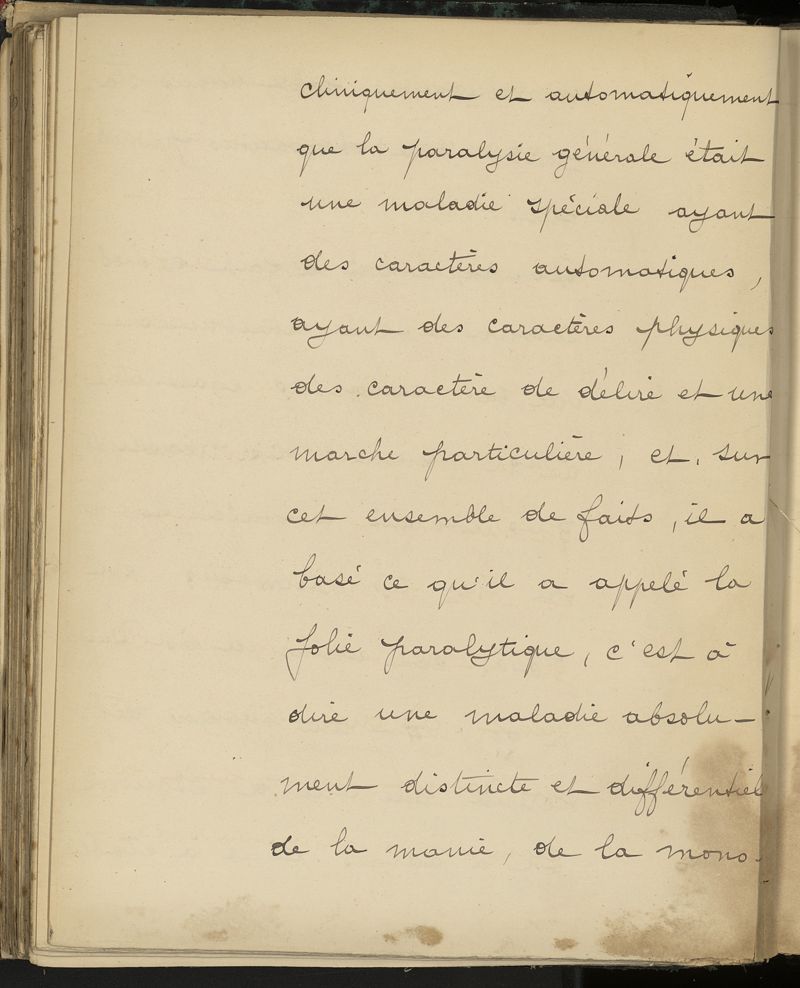 cliniquement et automatiquement
que la paralysie générale était
une maladie spéciale ayant
des caractères automatiques,
ayant des caractères physiques
des caractère de délire et une
marche particulière, et, sur
cet ensemble de faits, il a
basé ce qu'il a appelé la
folie paralytique, c'est à
dire une maladie absolu-
ment distincte et différentiel
de la manie, de la mono-